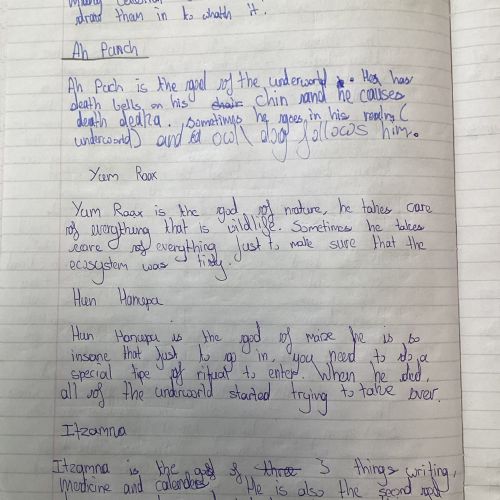 drand them in to whatch it.
Ah Panch
Ah Pach is the god of the underworld. He has
death bells on his chin and he causes
death. Sometimes he goes in his realm (
underworld) and a owl dog follows him.
Yum Raax
Yum Raax is the god of nature, he takes care
of everything that is wildlife. Sometimes he takes
care of everything just to make sure that the
ecosystem was tidy.
Hun Hanupa
Hun Hanupa is the god of maize he is so
insane that just to go in, you need to do a
special tipe of ritual to enter. When he died,
all of the underworld started trying to take over.
Itzamna
Itzamna is the god of 3 things writing,
medicine and calanders. He is also the second